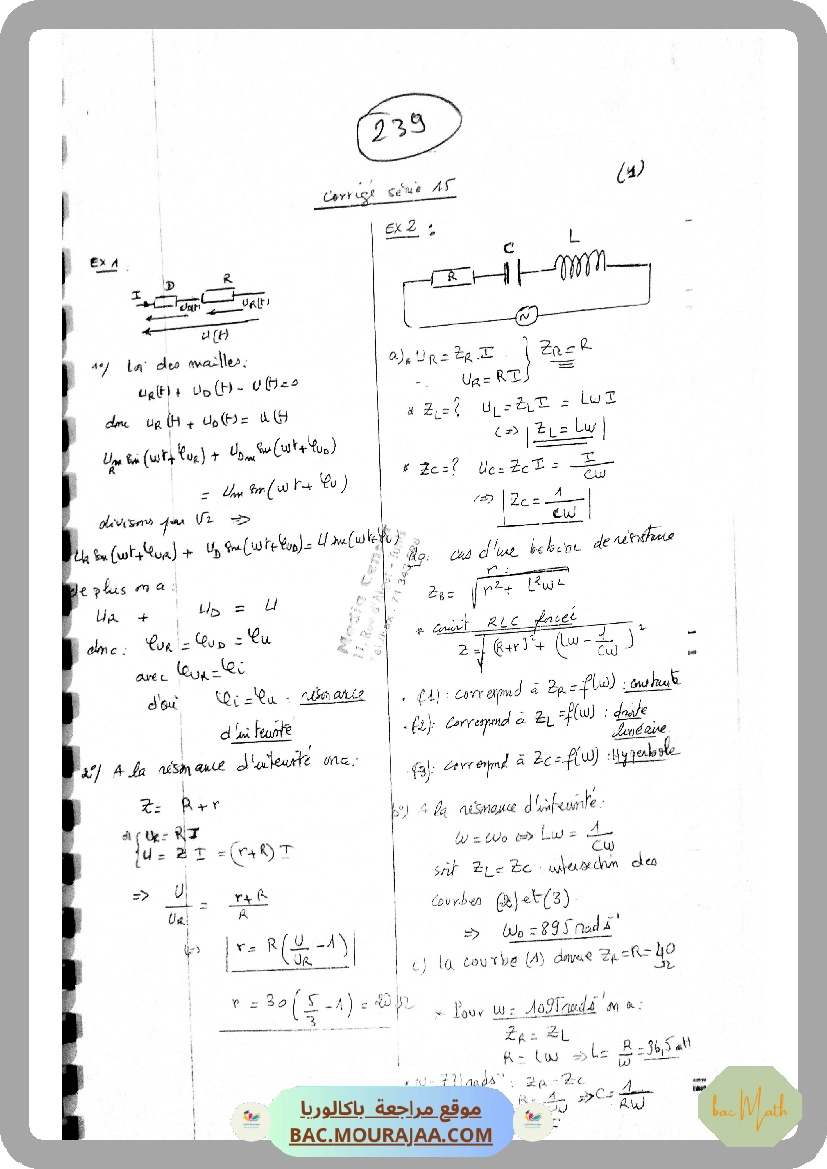 239
(1)
corrigé série 15
EX 1
I D R
U_D(t) U_R(t)
U(t)
1°/ Loi des mailles:
U_R(t) + U_D(t) - U(t) = 0
donc U_R(t) + U_D(t) = U(t)
U_Rm sin(wt+φ_UR) + U_Dm sin(wt+φ_UD)
= U_m sin(wt+φ_U)
divisons par √2 =>
U_R sin(wt+φ_UR) + U_D sin(wt+φ_UD) = U sin(wt+φ_U)
de plus on a:
U_R + U_D = U
donc: φ_UR = φ_UD = φ_U
avec φ_UR = φ_i
d'où φ_i = φ_U : résonance
d'intensité
2°/ A la résonance d'intensité on a:
Z = R+r
{ U_R = R I
U = Z I = (r+R) I
=> U/U_R = (r+R)/R
r = R(U/U_R - 1)
r = 30(5/3 - 1) = 20 Ω
EX 2 :
R C L
N
a) * U_R = Z_R . I } Z_R = R
U_R = R I
* Z_L = ? U_L = Z_L I = Lw I
<=> Z_L = Lw
* Z_C = ? U_C = Z_C I = I/Cw
=> Z_C = 1/Cw
cas d'une bobine de résistance
r :
Z_B = √(r² + L²w²)
* circuit RLC forcé
Z = √((R+r)² + (Lw - 1/Cw)²)
. (1) : correspond à Z_R = f(w) : constante
. (2) : correspond à Z_L = f(w) : droite
linéaire
(3) : correspond à Z_C = f(w) : Hyperbole
b°) A la résonance d'intensité:
w = w₀ <=> Lw = 1/Cw
soit Z_L = Z_C intersection des
courbes (2) et (3)
=> w₀ = 895 rad s⁻¹
c) la courbe (1) donne Z_R = R = 40
Ω
* Pour w = 1095 rad s⁻¹ on a:
Z_R = Z_L
R = Lw => L = R/w = 36,5 mH
rad s⁻¹ : Z_R = Z_C
R = 1/Cw => C = 1/Rw
Media Center
موقع مراجعة باكالوريا
BAC.MOURAJAA.COM
bac Math